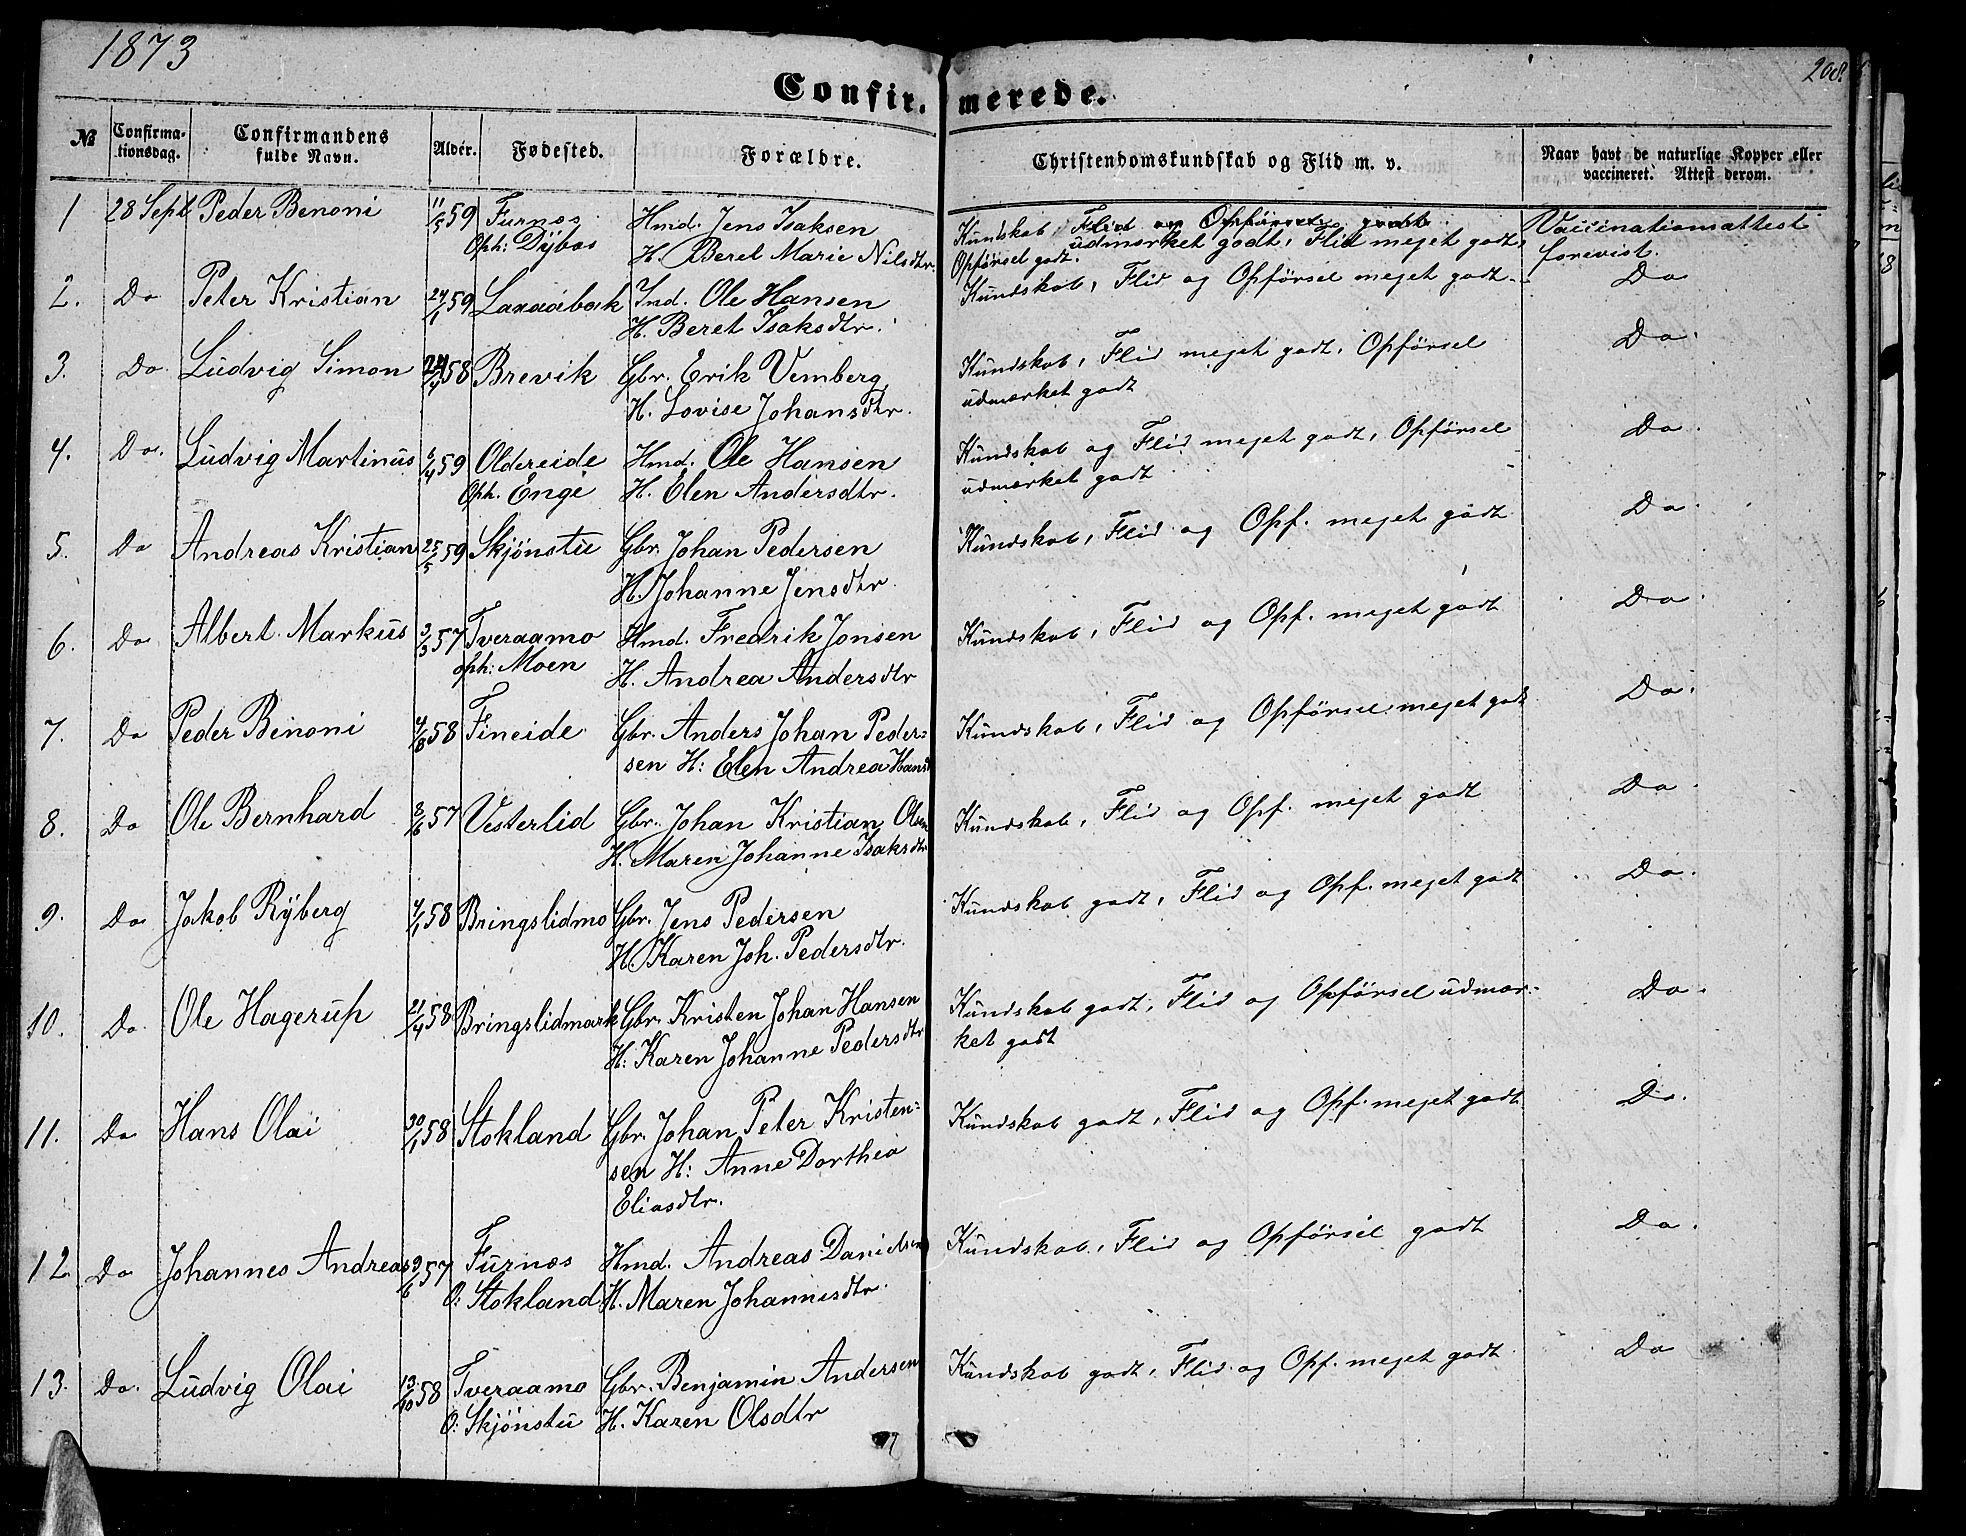 1873
208.
Confir. merede.
№ Confirma-tionsdag. Confirmandens fulde Navn. Alder. Fødested. Forældre. Christendomskundskab og Flid m. v. Naar havt de naturlige Kopper eller vaccineret. Attest derom.
1 28 Sept Peder Benoni 11/5 59 Furnæs Hmd. Jens Isaksen Kundskab, Flid og Opførsel godt Vaccinationsattest
Oph: Dybos H. Beret Marie Nilsdtr. udmærket godt, Flid meget godt, forevist.
Opførsel godt.
2. Do Peter Kristian 24/1 59 Ind. Ole Hansen Kundskab, Flid og Opførsel meget godt. Do
H. Beret Isaksdtr.
3. Do Ludvig Simon 58 Brevik Gbr. Erik Vemberg Kundskab, Flid meget godt, Opførsel Do.
H. Lovise Johansdtr. udmærket godt
4. Do. Ludvig Martinus 59 Oldereide Hmd. Ole Hansen Kundskab og Flid meget godt, Opførsel Do.
Oph. Enge H. Elen Andersdtr. udmærket godt
5. Do Andreas Kristian 25/5 59 Skjønstu Gbr. Johan Pedersen Kundskab, Flid og Opf. meget godt Do.
H. Johanne Jensdtr.
6. Do Albert Markus 3/3 57 Tveraamo Hmd. Fredrik Jonsen Kundskab, Flid og Opf. meget godt Do.
oph: Moen H. Andrea Andersdtr
7. Do Peder Benoni 4/8 58 Fineide Gbr. Anders Johan Peder= Kundskab, Flid og Opførsel meget godt Do.
sen H: Elen Andrea Hansd
8. Do Ole Bernhard 8/6 57 Vesterlid Gbr. Johan Kristian Olsen Kundskab, Flid og Opf. meget godt Do.
H. Maren Johanne Isaksdtr
9. Do Jakob Ryberg 4/1 58 Bringslidmo Gbr. Jens Pedersen Kundskab godt, Flid og Opf. meget godt Do.
H. Karen Joh. Pedersdtr.
10. Do. Ole Hagerup 21/4 58 Bringslidmark Gbr. Kristen Johan Hansen Kundskab godt, Flid og Opførsel udmær- Do.
H: Karen Johanne Pedersdtr ket godt
11. Do Hans Olai 30/1 58 Stokland Gbr. Johan Peter Kristen= Kundskab godt, Flid og Opf. meget godt Do.
sen H: Anne Dorthea
Eliasdtr.
12. Do Johannes Andreas 9/6 57 Furnæs Hmd. Andreas Danielsen Kundskab, Flid og Opførsel godt Do.
O: Stokland H. Maren Johannesdtr.
13. Do. Ludvig Olai 13/10 58 Tveraamo Gbr. Benjamin Andersen Kundskab godt, Flid og Opf. meget godt Do
O: Skjønstu H. Karen Olsdtr